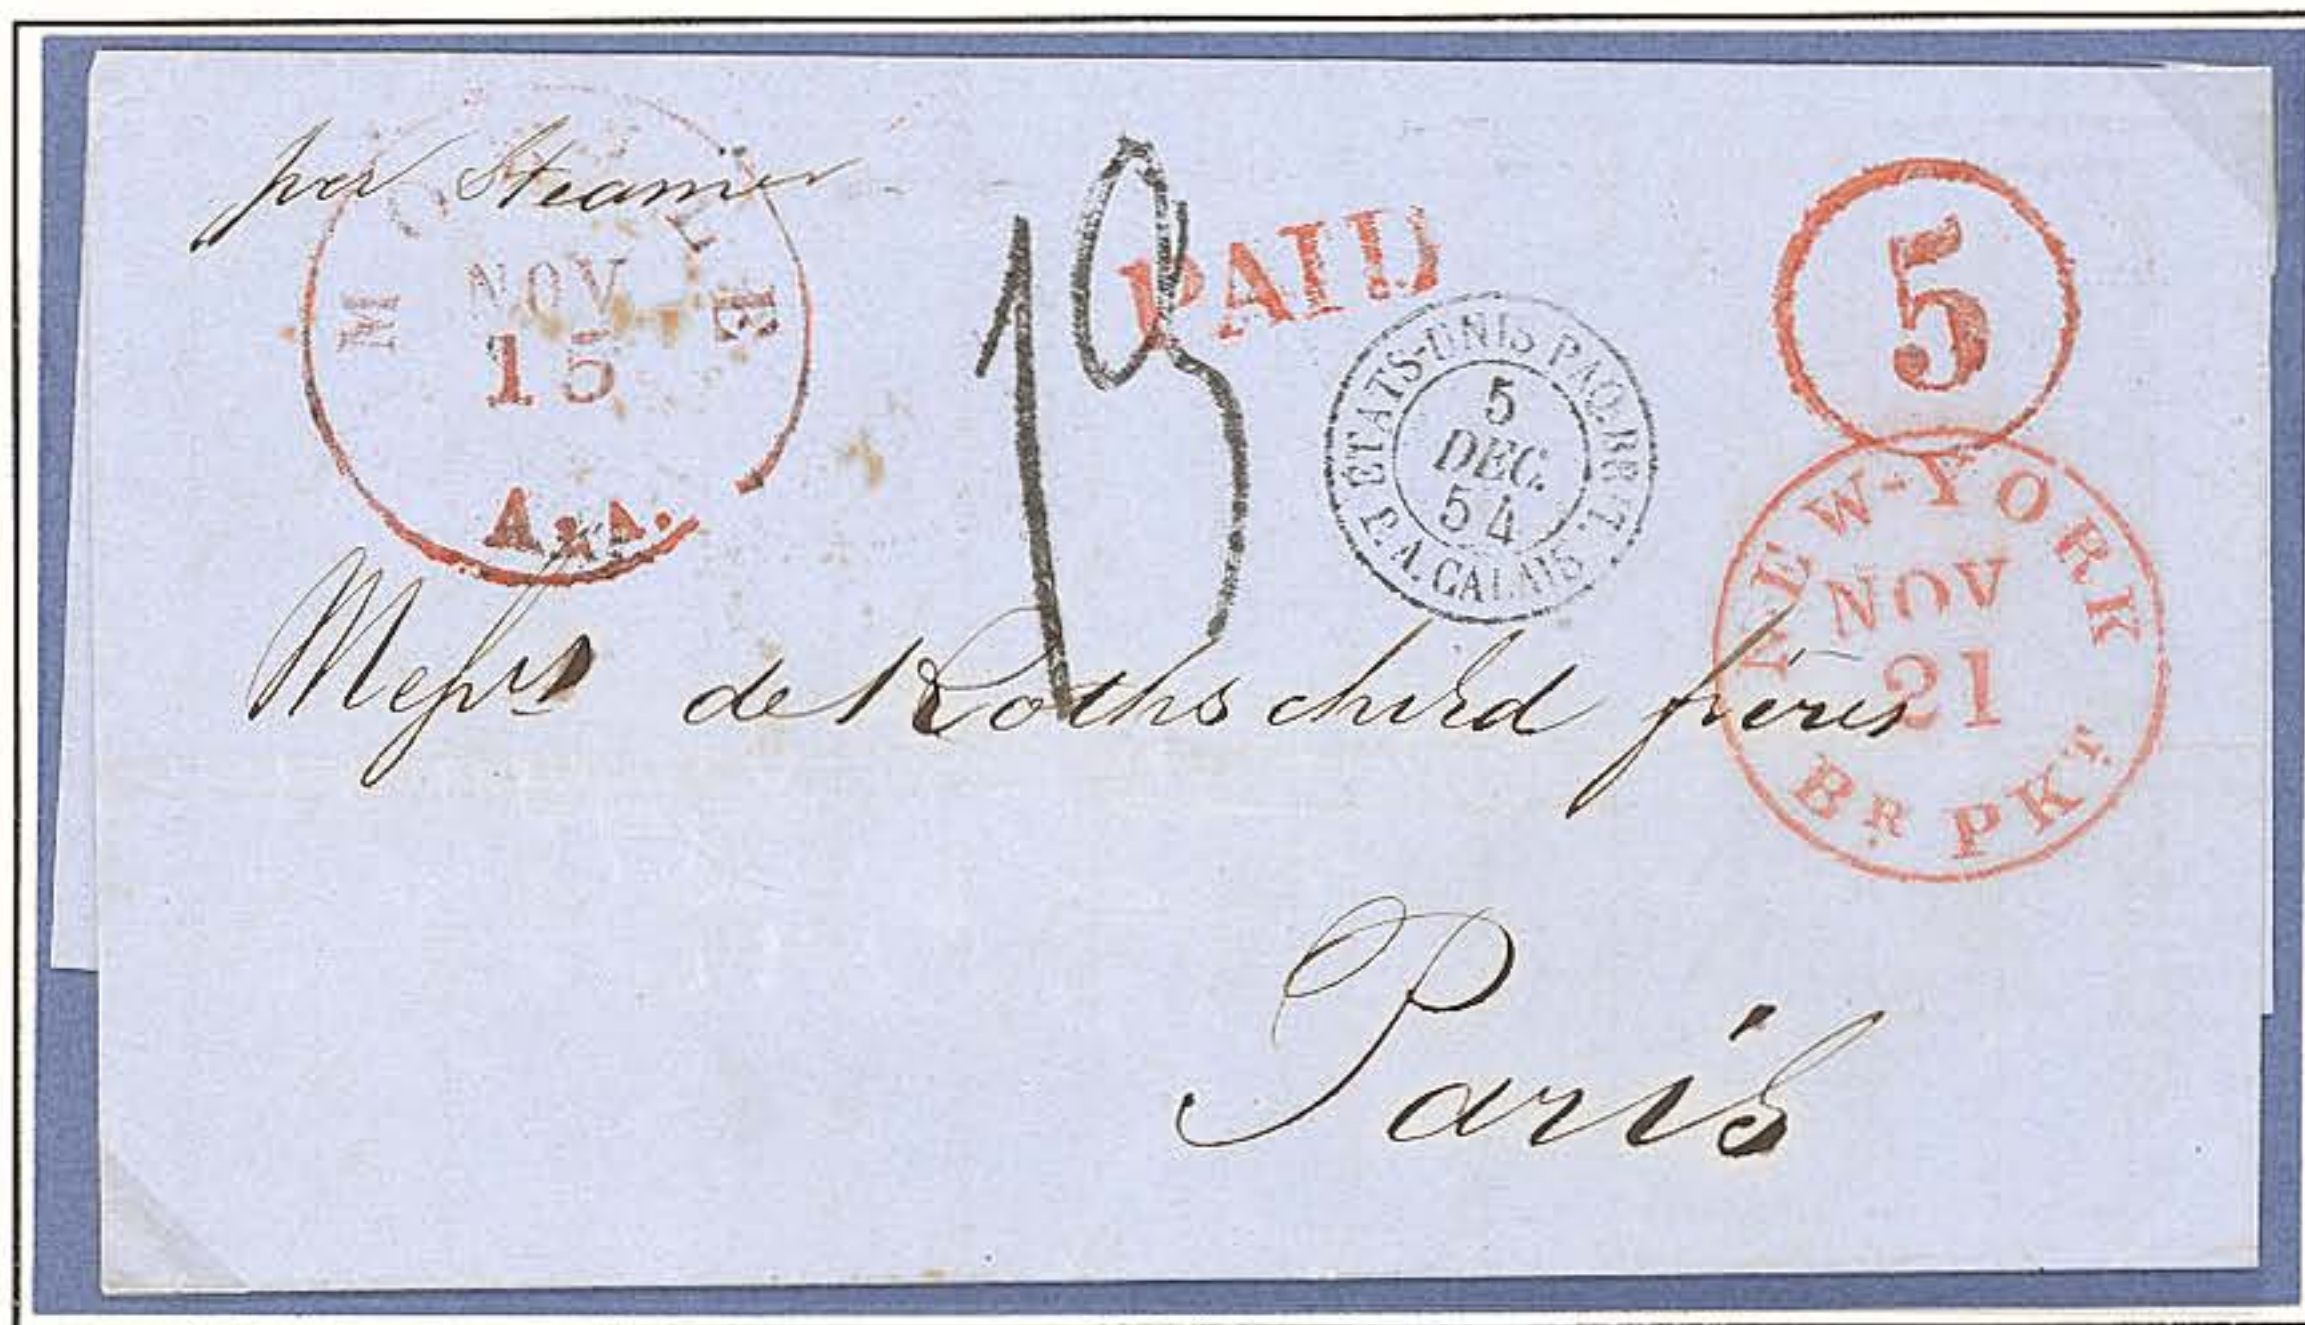 per Steamer
MOBILE
NOV
15
ALA.
13
PAID
5
ETATS-UNIS PAQ. BRIT.
5
DEC.
54
P. A. CALAIS
NEW-YORK
NOV
21
BR. PKT.
Messrs de Rothschild frères
Paris